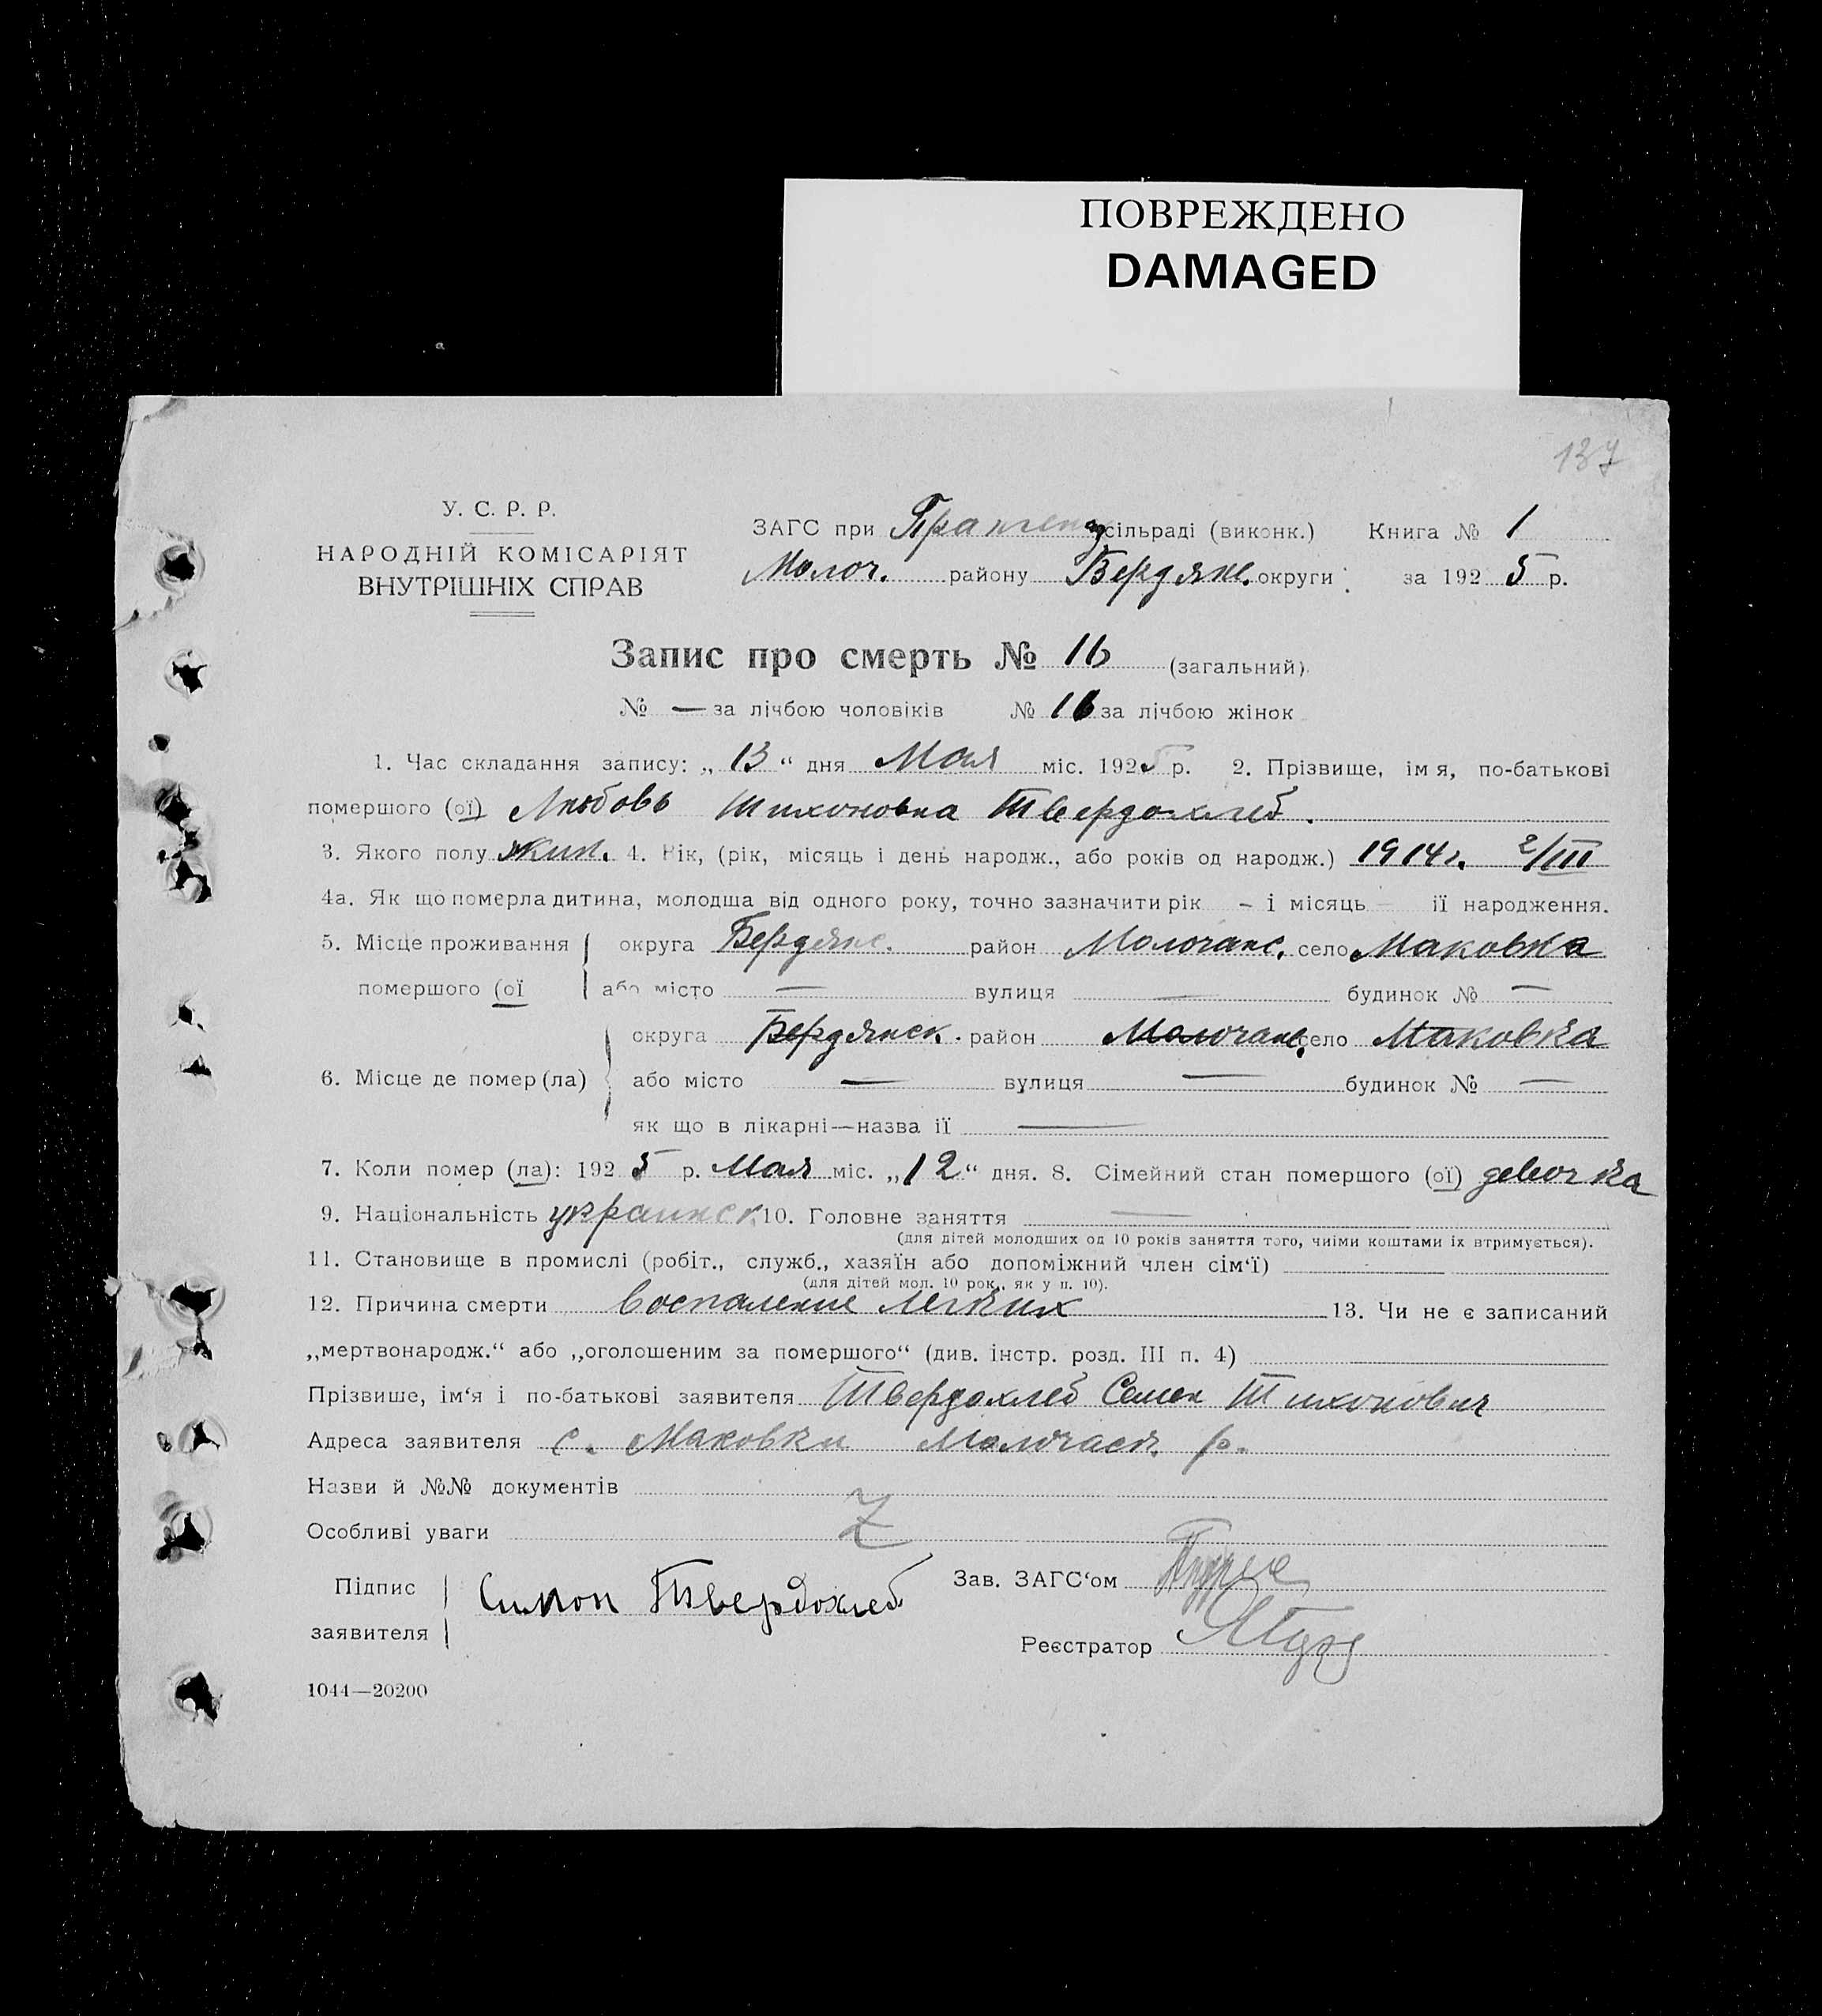 ПОВРЕЖДЕНО
DAMAGED
137
У. С. Р. Р.
НАРОДНІЙ КОМІСАРІЯТ
ВНУТРІШНІХ СПРАВ
ЗАГС при сільраді (виконк.) Книга № 1
Молоч. району Бердянс. округи за 1925 р.
Запис про смерть № 16 (загальний)
№ — за лічбою чоловіків № 16 за лічбою жінок
1. Час складання запису: „13“ дня Мая міс. 1925 р. 2. Прізвище, імя, по-батькові
помершого (ої) Любовь Тихоновна Твердохлеб.
3. Якого полу жин. 4. Вік, (рік, місяць і день народж., або років од народж.) 1914 г. 2/III
4а. Як що померла дитина, молодша від одного року, точно зазначити рік – і місяць – її народження.
5. Місце проживання округа Бердянс. район Молочанс. село Маковка
помершого (ої або місто — вулиця — будинок № —
округа Бердянск. район Молочанс. село Маковка
6. Місце де помер (ла) або місто — вулиця — будинок № —
як що в лікарні—назва її —
7. Коли помер (ла): 1925 р. Мая міс. „12“ дня. 8. Сімейний стан помершого (ої) девочка
9. Національність украинск. 10. Головне заняття —
(для дітей молодших од 10 років заняття того, чиїми коштами їх втримується).
11. Становище в промислі (робіт., служб., хазяїн або допоміжний член сім‘ї)
(для дітей мол. 10 рок., як у п. 10).
12. Причина смерти воспаление легких 13. Чи не є записаний
„мертвонародж.“ або „оголошеним за помершого“ (див. інстр. розд. III п. 4)
Прізвише, ім‘я і по-батькові заявителя Твердохлеб Семен Тихонович
Адреса заявителя с. Маковки р.
Назви й №№ документів
Особливі уваги
Підпис
заявителя
Симон Твердохлеб
Зав. ЗАГС‘ом
Реєстратор
1044—20200